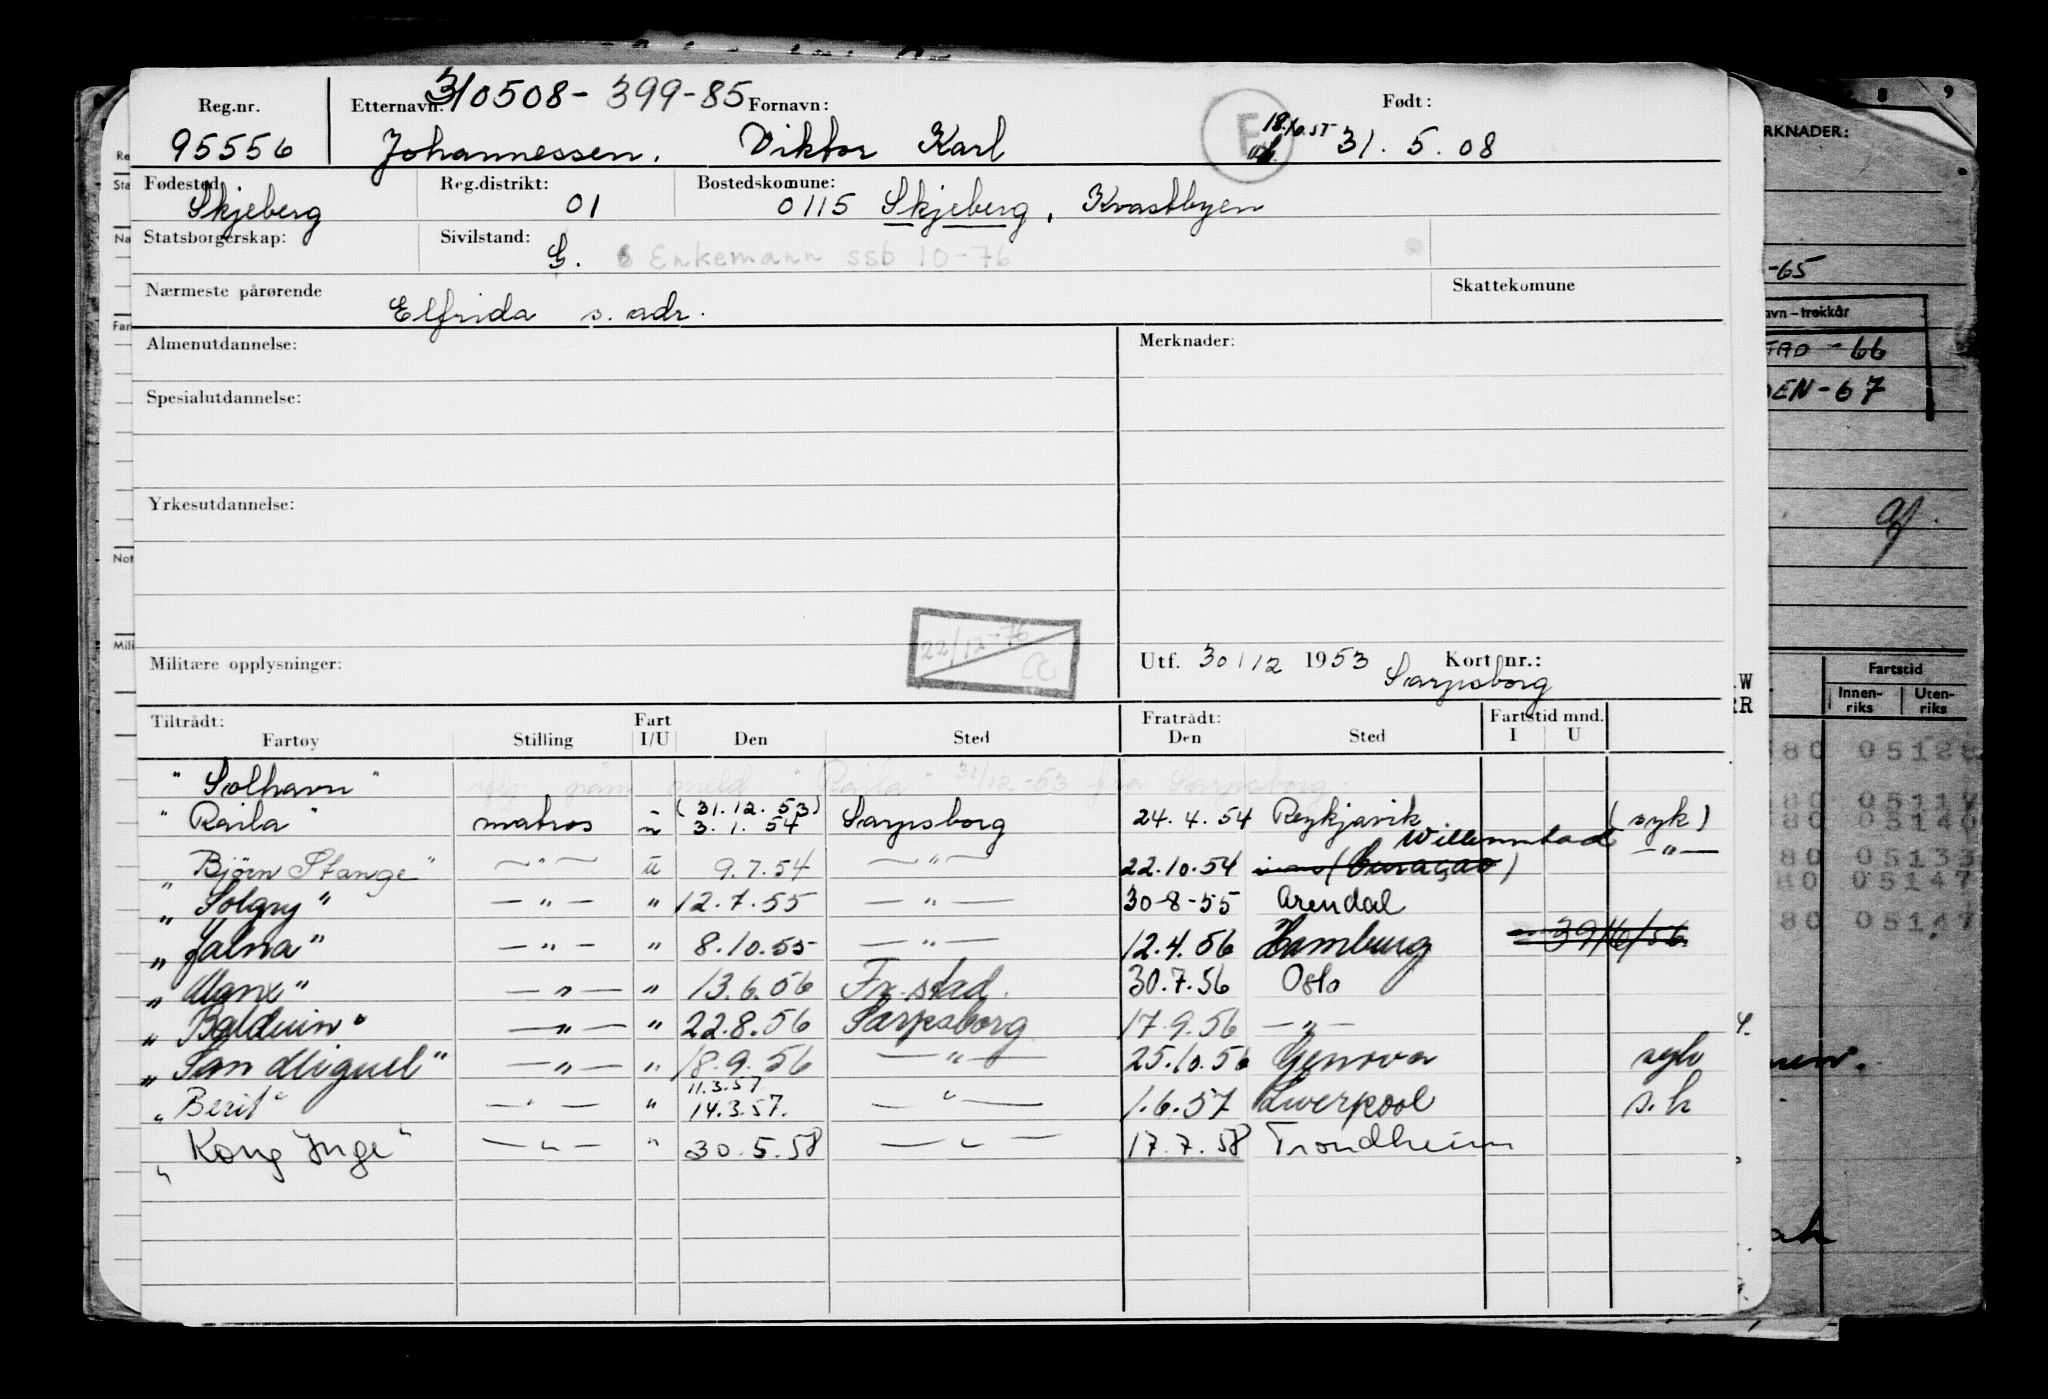 310508-399-85
Reg.nr. Etternavn: Fornavn: Født:
95556 Johannessen, Viktor Karl F 18.10.57 31.5.08
Fødested Reg.distrikt: Bostedskomune:
Skjeberg 01 0115 Skjeberg, Kvastbyen
Statsborgerskap: Sivilstand:
G. Enkemann ssb 10-76
Nærmeste pårørende Skattekomune
Elfrida s. adr.
Almenutdannelse: Merknader:
Spesialutdannelse:
Yrkesutdannelse:
22/12-76
Militære opplysninger: Utf. 30/12 1953 Kort nr.:
Sarpsborg
Tiltrådt: Fart Fratrådt: Fartstid mnd.
Fartøy Stilling I/U Den Sted Den Sted I U
"Solhavn" meld "Raila" 31/12-53 fra Sarpsborg.
"Raila" matros u (31.12.53) 3.1.54 Sarpsborg 24.4.54 Reykjavik (syk)
"Bjørn Stange" —"— u 9.7.54 —"— 22.10.54 Willemstad (Curaçao) —"—
"Solgry" —"— " 12.7.55 —"— 30-8-55 Arendal
"Jalna" —"— " 8.10.55 —"— 12.4.56 Hamburg
"Manx" —"— " 13.6.56 Fr.stad. 30.7.56 Oslo
"Balduin" —"— " 22.8.56 Sarpsborg 17.9.56 —"—
"San Miguel" —"— " 18.9.56 —"— 25.10.56 Genova syk
"Berit" —"— " 11.3.57 14.3.57. —"— 1.6.57 Liverpool s.k
"Kong Inge" —"— " 30.5.58 —"— 17.7.58 Trondheim
8 9
RKNADER:
-65
avn-trekkår
-66
DEN-67
Fartstid
Innen-riks Uten-riks
80 05128
80 05114
80 05140
80 05133
80 05147
80 05147